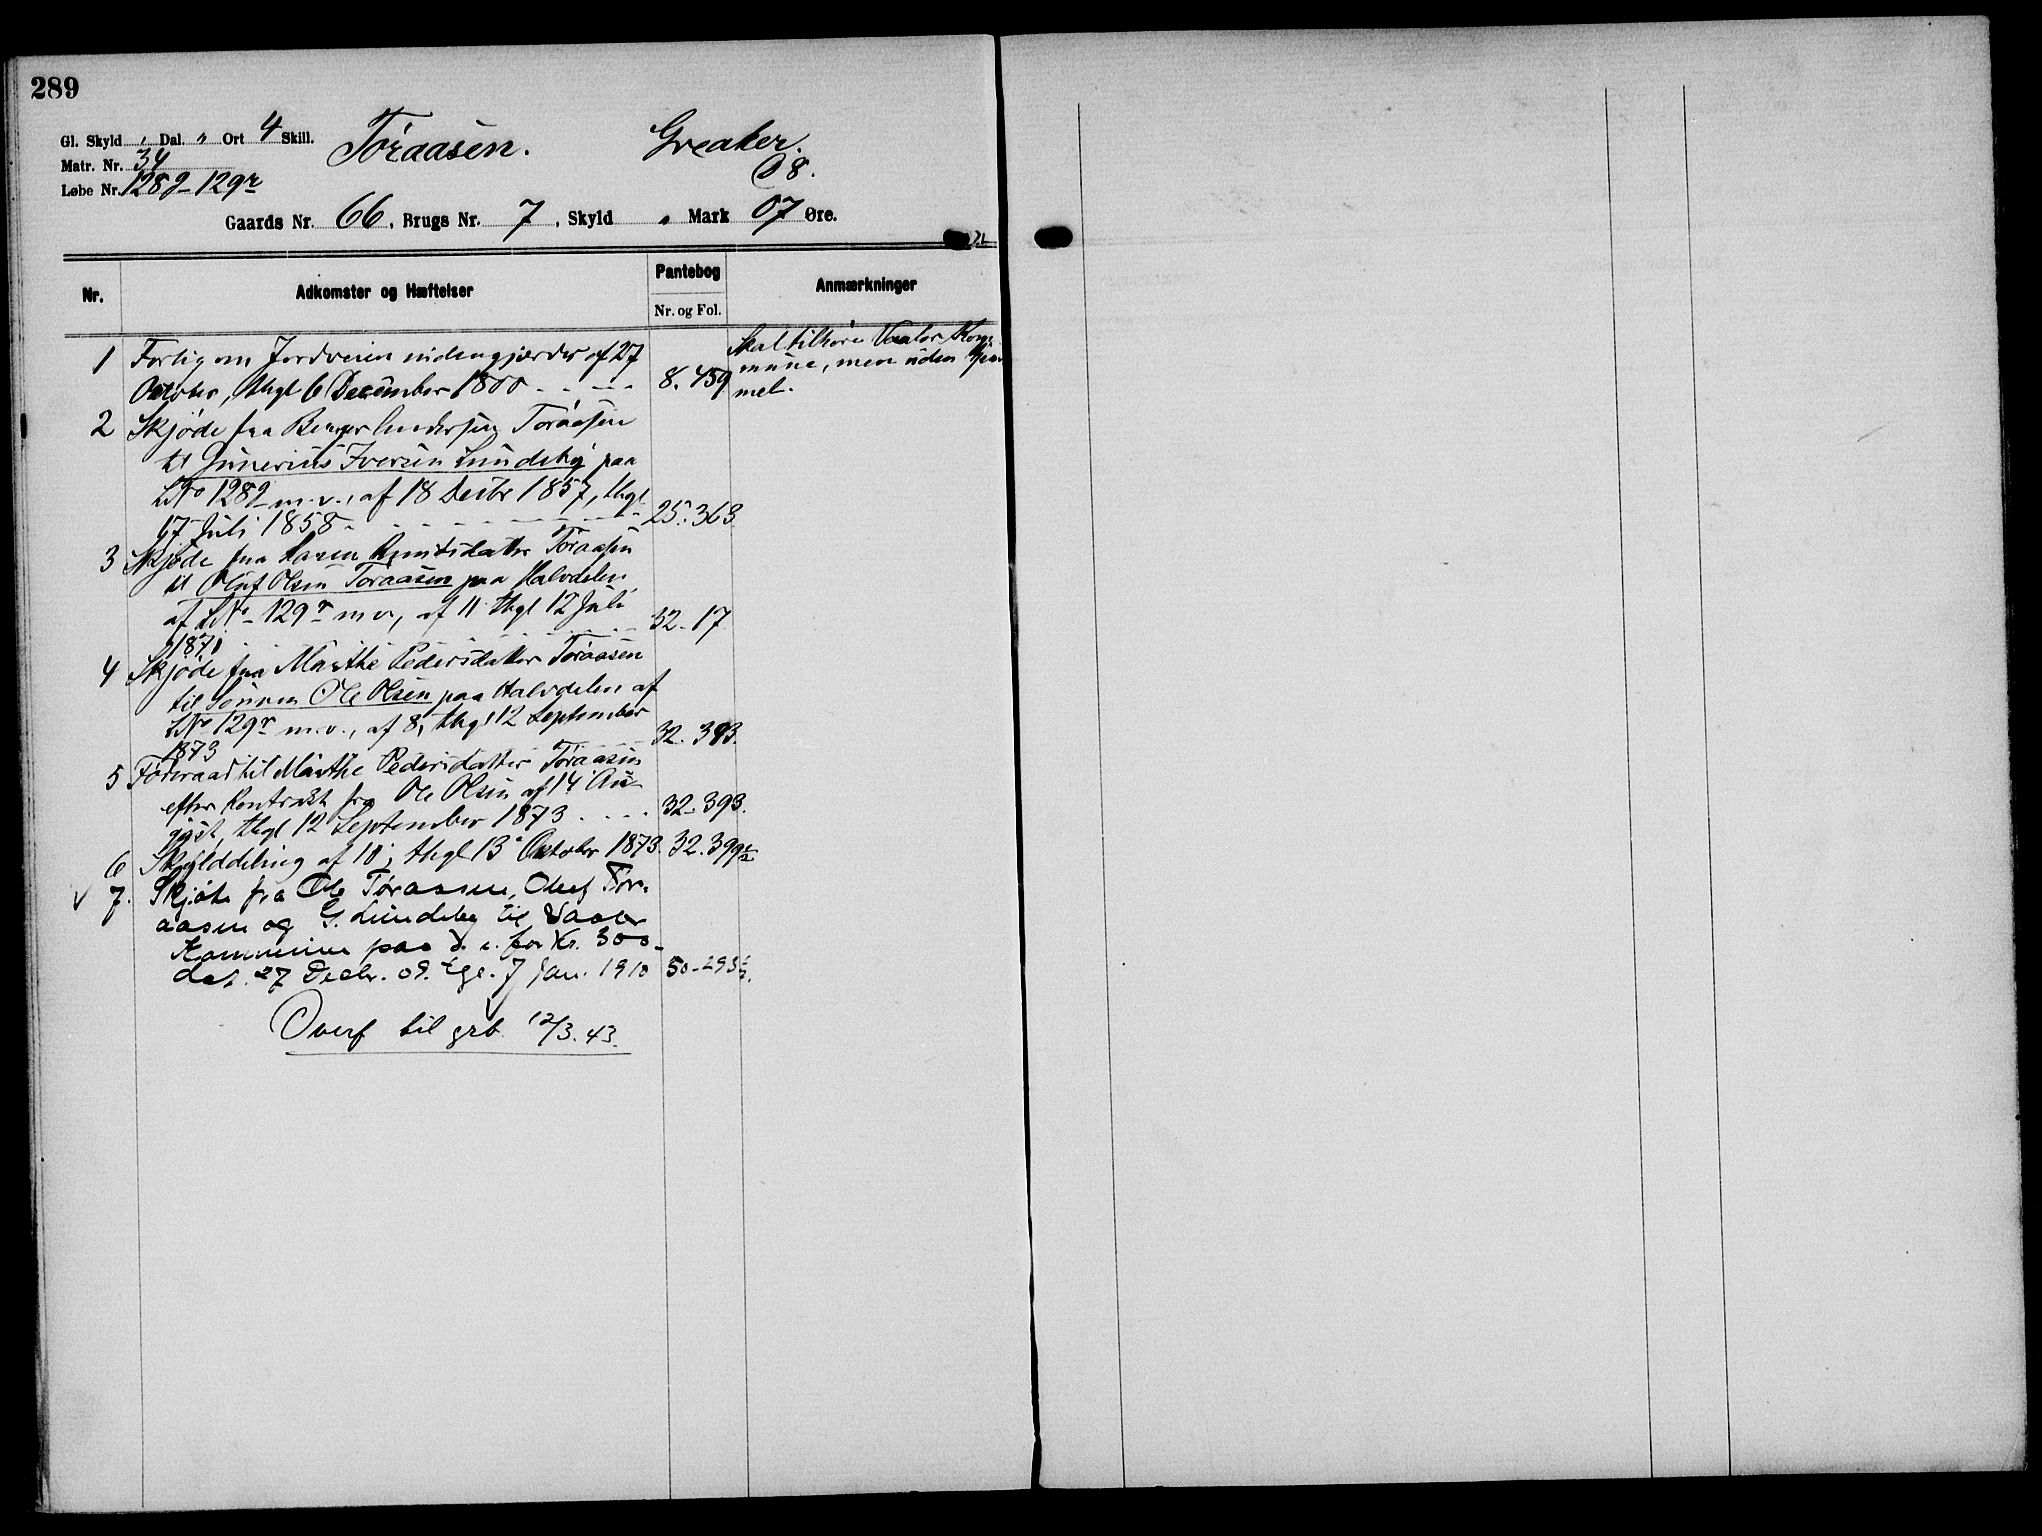 289
Gl. Skyld „ Dal. „ Ort 4 Skill.
Tøraasen. Greaker.
Matr. Nr. 34
08.
Løbe Nr. 128g - 129r
Gaards Nr. 66, Brugs Nr. 7, Skyld „ Mark 07 Øre.
Nr. Adkomster og Hæftelser Pantebog Anmærkninger
Nr. og Fol.
1 Forlig om Jordveien af 27
October, thgl 6 December 1800 8. 459
Skal tilhøre Vaaler Kom-
mune, men uden Hjem-
mel.
2 Skjøde fra Andersen Toraasen
til Gunerius Iversen Lundeby paa
LNo 128g m.v., af 18 Decbr 1857, thgl
17 Juli 1858 25. 363
3 Skjøde fra Karen Knutsdatter Toraasen
til Oluf Olsen Toraasen paa Halvdelen
af LNo 129r m.v., af 11 thgl 12 Juli
1871 32-17
4 Skjøde fra Marthe Pedersdatter Toraasen
til Sønnen Ole Olsen paa Halvdelen af
LNo 129r m.v., af 8, thgl 12 September
1873 32. 393.
5 Føderaad til Marthe Pedersdatter Toraasen
efter Kontrakt fra Ole Olsen af 14 Au-
gust, thgl 12 September 1873 32-393.
6 Skylddeling af 10, thgl 13 Oktober 1873. 32. 399
7. Skjøte fra Ole Tøraasen, Oluf Tør-
aasen og G. Lundeby til Vaaler
Kommune paa d. e. for Kr. 300-
dat. 27 Decbr. 09. tgl. 7 Jan. 1910 50-293
Overf til grb. 12/3. 43.